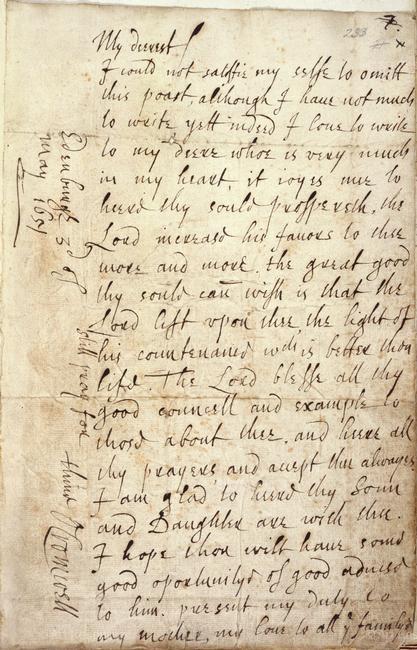 233
7.
My deerest
I could not satisfie my selfe to omitt
this poast, although I have not much
to write yett indeed I love to write
to my deere whoe is very much
in my heart, it ioyes mee to
heere thy soule prospereth, the
Lord increase his favors to thee
more and more. the great good
thy soule can wish is that the
Lord lift upon thee the light of
his countenance wch is better then
life. The Lord blesse all thy
good councell and example to
those about thee. and heere all
thy prayers and acept thee alwayes
I am glad to heere thy Sonn
and Daughter are with thee.
I hope thou wilt have some
good oportunitye of good advice
to him. present my duty to
my mother, my love to all ye familye
still pray for
thine O Cromwell
Edenburgh 3d of
May 1651